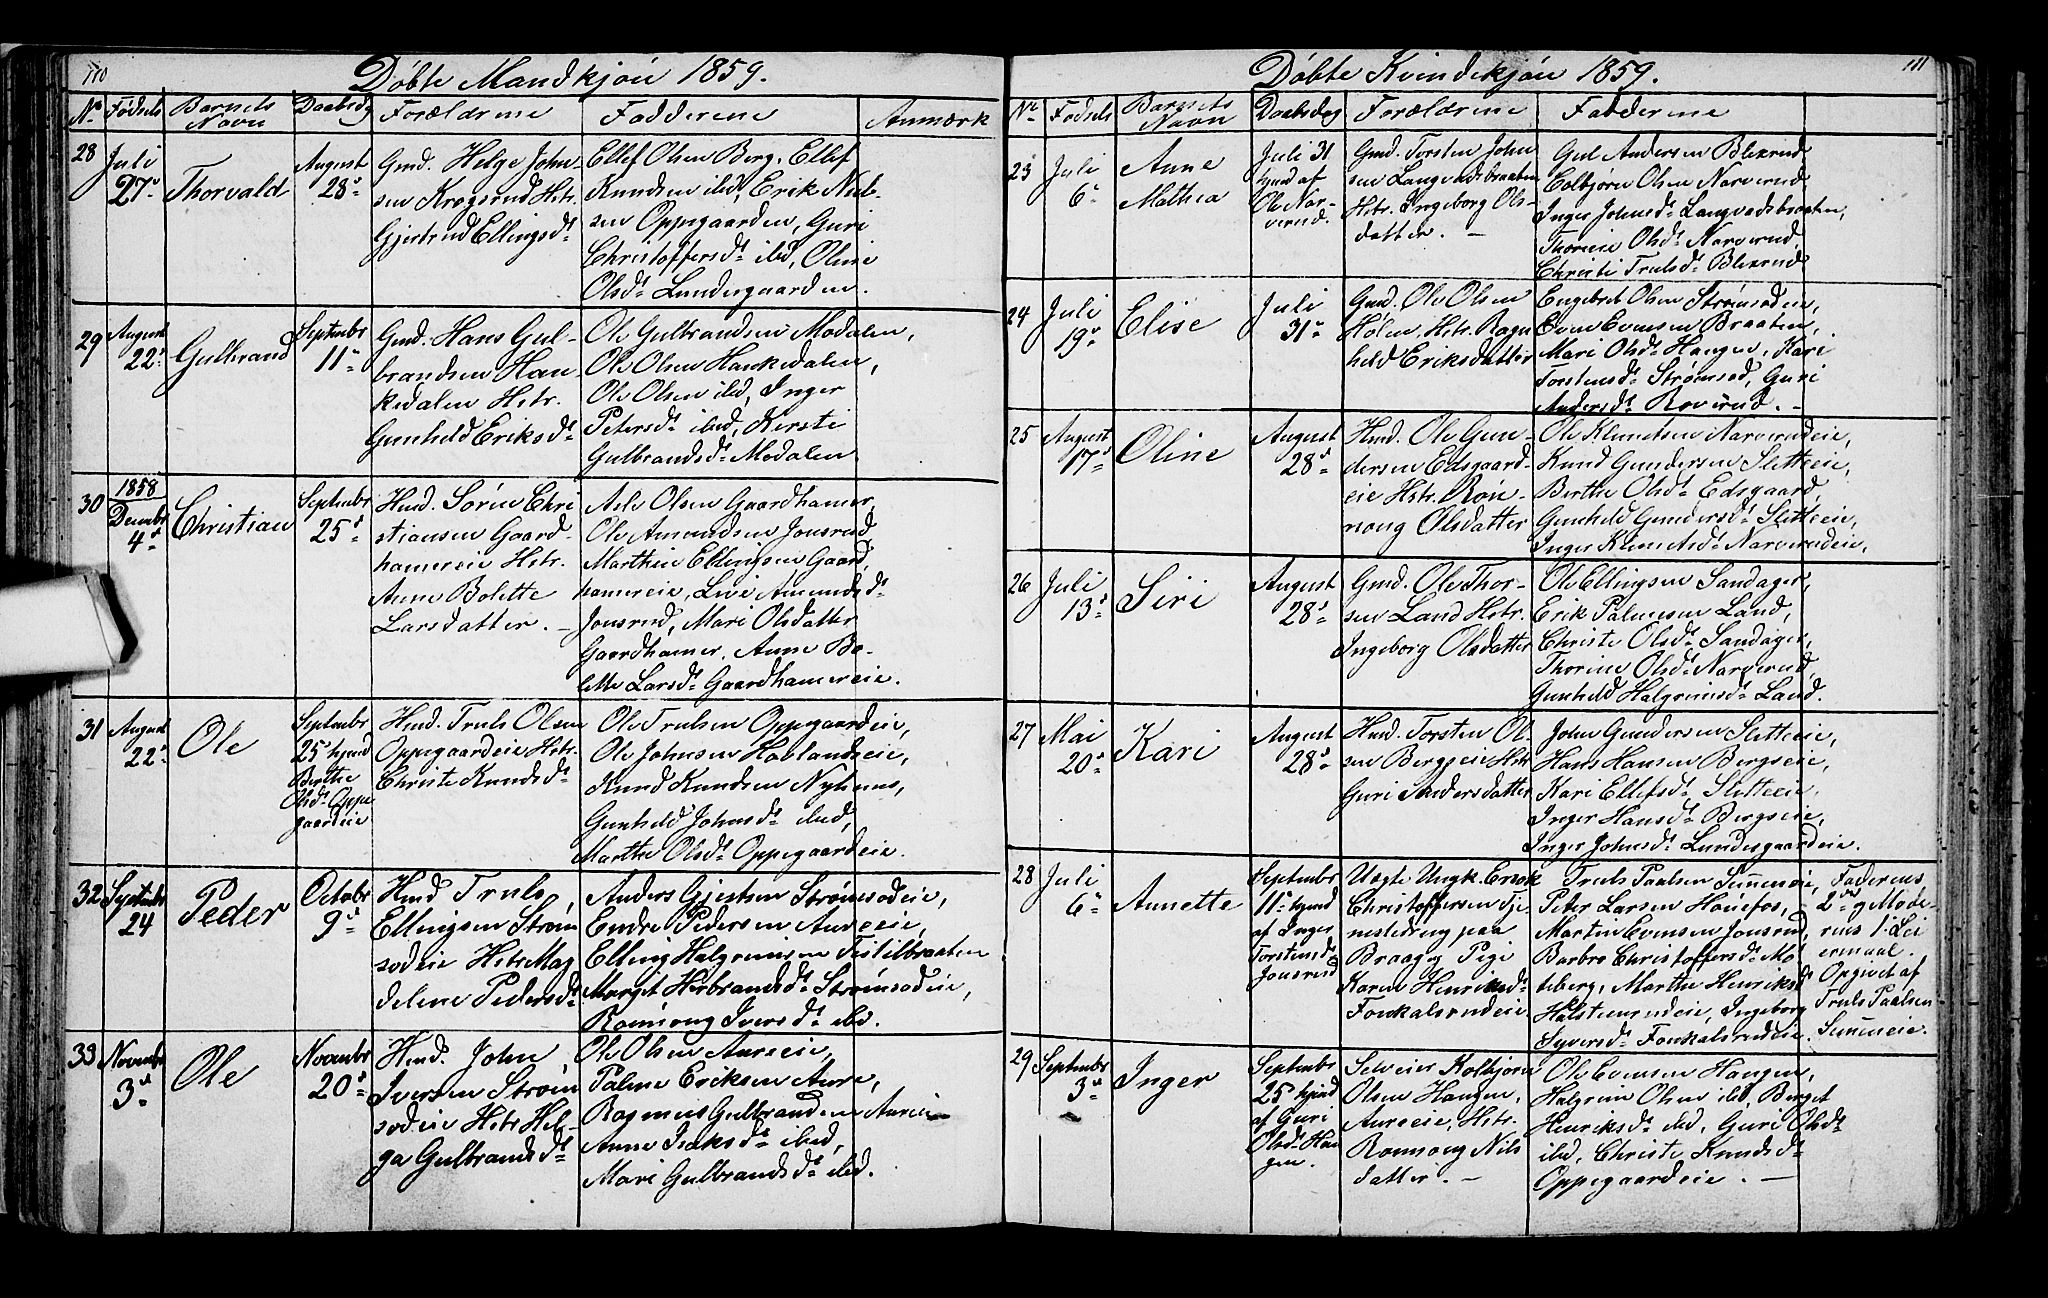 110
Døbte Mandkjøn 1859.
No Fødsels Barnets Navn Daabsdag Forældrene Fadderene Anmærk
28 Juli 27de Thorvald August 28de
Gmd. Helge John-
sen Krogsrud Hstr.
Gjertrud Ellingsdr
Ellef Olsen Berg, Ellef
Knudsen ibid, Erik Niel-
sen Oppegaarden, Guri
Christoffersdr ibid, Oline
Olsdr Lundesgaarden.
29 August 22de Gulbrand Septembr 11te
Gmd. Hans Gul-
brandsen Han-
kedalen Hstr.
Gunhild Eriksdr
Ole Gulbrandsen Modalen,
Ole Olsen Hankedalen,
Ole Olsen ibid, Inger
Petersdr ibid, Kersti
Gulbrandsdr Modalen
30 1858 Decembr 4de Christian Septembr 25de
Husd. Søren Chri
stiansen Gaard-
hamereie Hstr.
Anne Bolette
Larsdatter. –
Asle Olsen Gaardhamer,
Ole Amundsen Jonsrud,
Marthin Ellingsen Gaard
hamereie, Live Amundsdr
Jonsrud, Mari Olsdatter
Gaardhamer, Anne Bo-
lette Larsdr Gaardhamereie.
31 August 22de Ole
Septembr
25 hjmd
Berthe
Olsdr Oppe
gaardeie
Husd. Truls Olsen
Oppegaardeie Hstr.
Christe Knudsdr
Ole Trulsen Oppegaardeie,
Ole Johnsen Hovlandseie,
Knud Knudsen Nyhuus,
Gunhild Johnsdr ibid,
Marthe Olsdr Oppegaardeie.
32 Septembr 24 Peder Octobr 9de
Husd Truls
Ellingsen Strøm
sodeie Hstr Mag
delene Pedersdr
Anders Gjestsen Strømsodeie,
Endre Pedersen Aureeie,
Elling Halgrimsen Tistilbraaten
Margit Herbrandsdr Strømsodeie,
Rønnoug Iversdr ibd.
33 Novembr 3de Ole Novembr 20de
Husd. John
Iversen Strøm
sodeie Hstr Hel-
ga Gulbrandsdr
Ole Olsen Aureeie,
Palme Eriksen Aure,
Rasmus Gulbrandsen Aureie
Anne Isaksdr ibid,
Mari Gulbrandsdr ibid.
111
Døbte Kvindekjøn 1859.
No Fødsels Barnets Navn Daabsdag Forældrene Fadderene
23 Juli 6te Anne Mathea
Juli 31
hjmd af
Ole Nar-
verud.
Gmd. Torsten John
sen Langvadsbraaten
Hstr. Ingeborg Ols-
datter. –
Gul Andersen Blixrud
Colbjørn Olsen Narverud
Inger Johnsdr Langvadsbraaten,
Thorine Olsdr Narverud,
Christi Trulsdr Blixrud
24 Juli 19de Elise Juli 31te
Gmd. Ole Olsen
Holen Hstr. Ragn
hild Eriksdatter
Engebret Olsen Strømsodeie,
Even Evensen Braaten,
Mari Olsdr Haugen, Kari
Torstensdr Strømsod, Guri
Andersdr Roverud. –
25 August 17de Oline August 28de
Husd. Ole Gun-
dersen Edsgaard-
eie Hstr. Røn-
noug Olsdatter
Ole Klemetsen Narverudeie,
Knud Gundersen Sletteeie,
Berthe Olsdr Edsgaard,
Gunhild Gundersdr Sletteeie,
Inger Klemetsdr Narverudeie.
26 Juli 13de Siri August 28de
Gmd. Ole Thor-
sen Land Hstr.
Ingeborg Olsdatter
Ole Ellingsen Sandager,
Erik Palmesen Land,
Christe Olsdr Sandager,
Thorine Olsdr Narverud
Gunhild Halgrimsdr Land.
27 Mai 20de Kari August 28de
Husd. Torsten Ol-
sen Bergseie Hstr
Guri Andersdatter
John Gundersen Sletteeie,
Hans Hansen Bergseie,
Kari Ellefsdr Sletteeie,
Inger Hansdr Bergseie,
Inger Johnsdr Lundesgaardeie.
28 Juli 6te Annette
Septembr
11te hjmd
af Inger
Torstensdr
Jonsrud
Uægte Ungk. Enok
Christoffersen tje-
nestedreng paa
Braa og Pige
Karen Henriksdr
Fonkalsrudeie
Truls Paalsen Simmeneie,
Peter Larsen Hønefos,
Martin Evensen Jonsrud,
Barbro Christoffersdr Mo
steberg, Marthe Henriksd
Halsteinrudeie, Ingeborg
Syversdr Fonkalsrudeie.
Faderens
2det og Mode-
rens 1. Lei
ermaal.
Opgivet af
Truls Paalsen
Simmeneie.
29 Septembr 3de Inger
Septembr
25 hjmd
af Guri
Olsdr Hau
gen.
Selveier Kolbjørn
Olsen Haugen,
Aureeie, Hstr.
Rønnoug Nils
datter. –
Ole Evensen Haugen,
Halgrim Olsen ibid, Berget
Henriksdr ibid, Guri Olsdr
ibid, Christe Knudsdr
Oppegaardeie. –